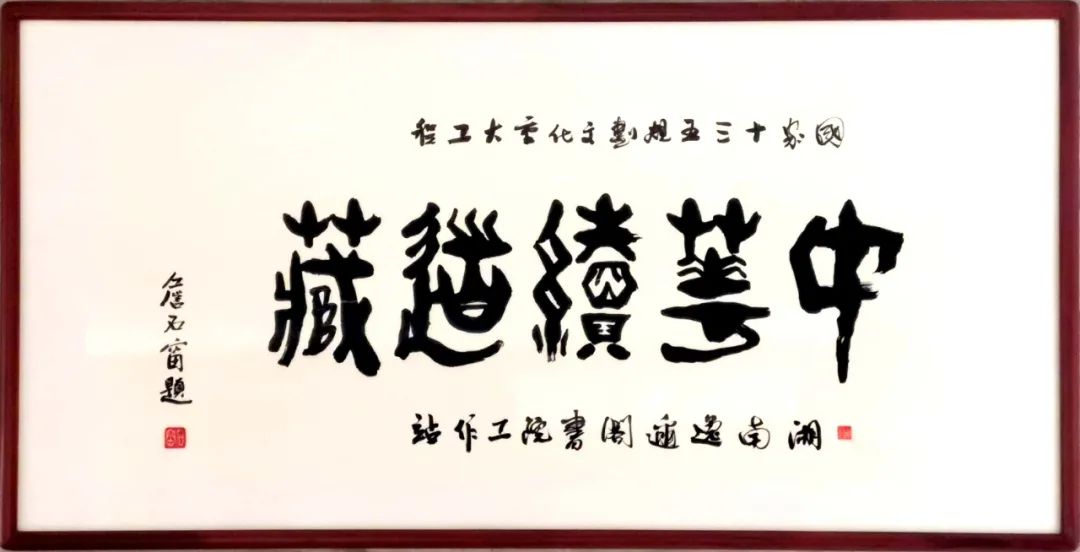 國家十三五規劃文化重大工程
中華續道藏
湖南閣書院工作站
石窗題